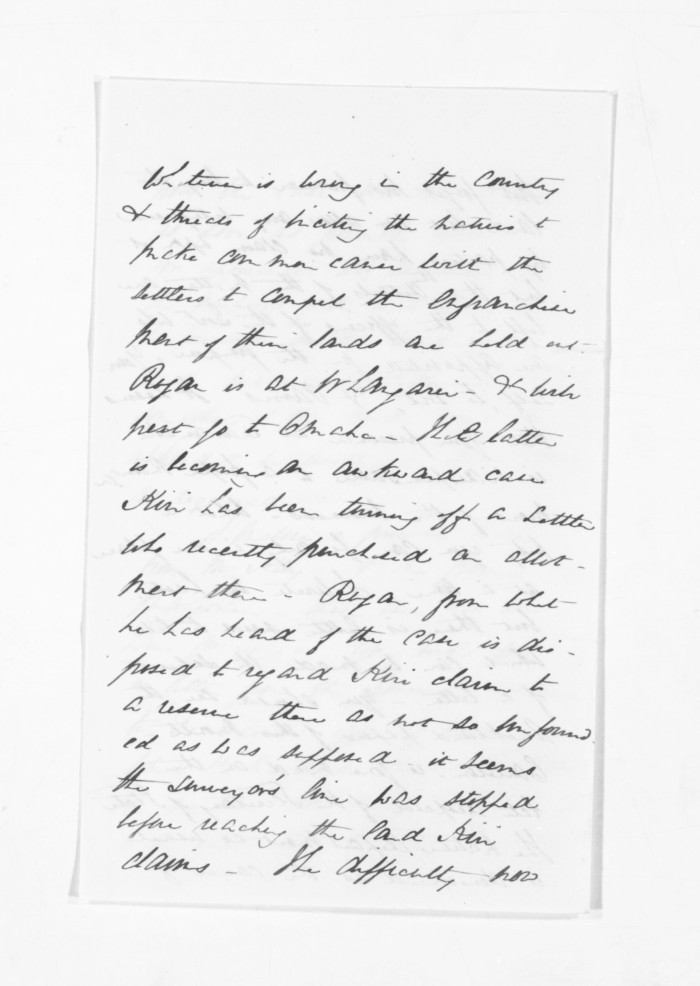 Whatever is wrong in the Country
& threats of inciting the natives to
make common cause with the
settlers to compel the enfranchise
ment of their lands are held out.
Rogan is at Whangarei - & will
next go to Omaha - The latter
is becoming an awkward case
Kiri has been turning off a settler
who recently purchased an allot-
ment there - Rogan, from what
he has heard of the case is dis-
posed to regard Kiri claim to
a reserve there as not so unfound-
ed as was supposed - it seems
the surveyor's line was stopped
before reaching the land Kiri
claims - The difficulty now